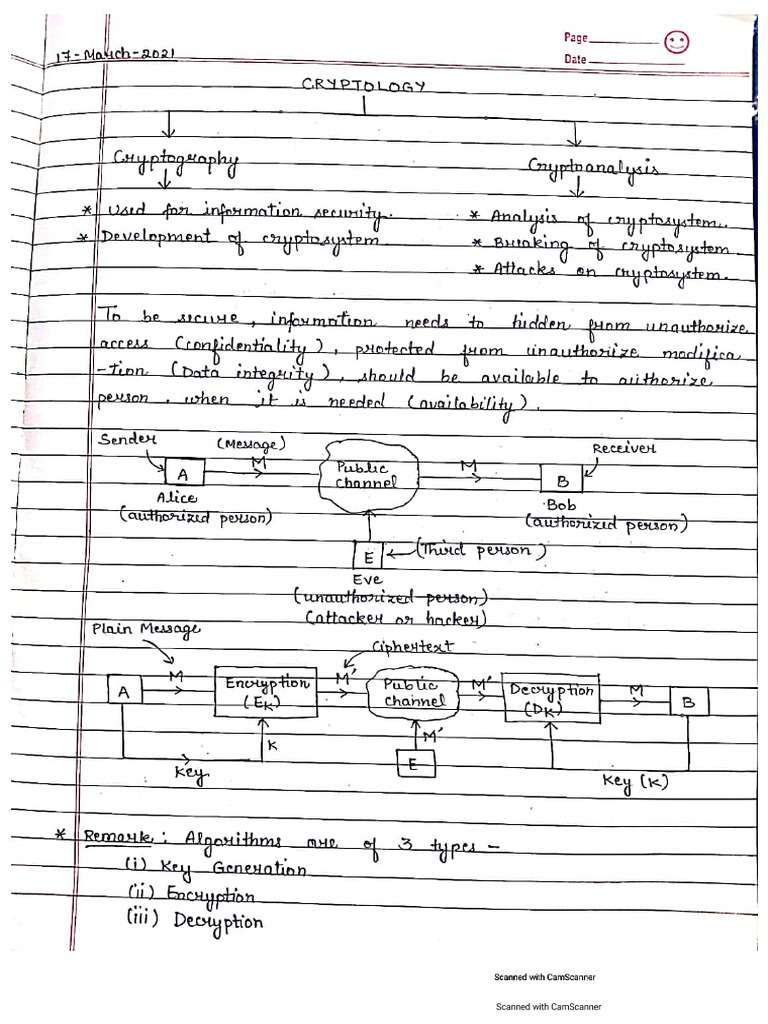 Page
17-March-2021
Date
CRYPTOLOGY
Cryptography
Cryptoanalysis
* Used for information security.
* Development of cryptosystem
* Analysis of cryptosystem..
* Breaking of cryptosystem
* Attacks on cryptosystem.
To be secure, information needs to hidden from unauthorize
access (confidentiality), protected from unauthorize modifica
-tion (Data integrity), should be available to authorize
person, when it is needed (availability).
Sender
(Message)
Receiver
A
M
Public
channel
M
B
Alice
(authorized person)
Bob
(authorized person)
E
(Third person)
Eve
(unauthorized person)
(attacker or hacker)
Plain Message
Ciphertext
A
M
Encryption
(EK)
M'
Public
channel
M'
Decryption
(DK)
M
B
K
M'
E
Key
Key (K)
* Remark: Algorithms are of 3 types -
(i) Key Generation
(ii) Encryption
(iii) Decryption
Scanned with CamScanner
Scanned with CamScanner